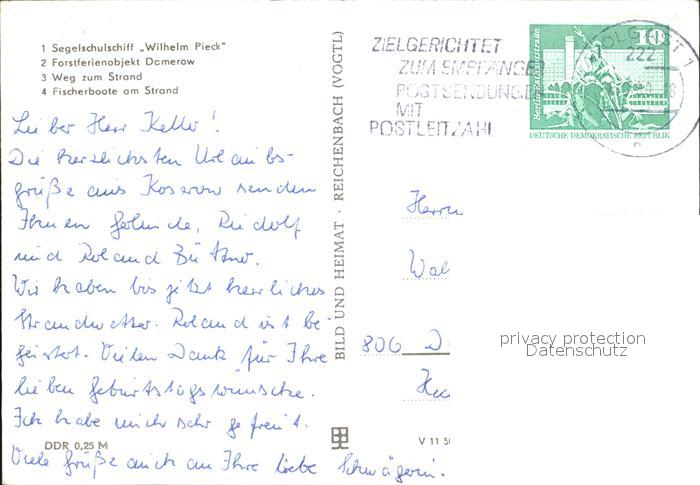 1 Segelschulschiff „Wilhelm Pieck"
2 Forstferienobjekt Damerow
3 Weg zum Strand
4 Fischerboote am Strand
Lieber Herr Keller!
Die herzlichsten Urlaubs-
grüße aus Koserow senden
Ihnen Gelinde, Rudolf
und Roland Büttner.
Wir haben bis jetzt herrliches
Strandwetter. Roland ist be-
geistert. Vielen Dank für Ihre
lieben Geburtstagswünsche.
Ich habe mich sehr gefreut.
DDR 0,25 M
Viele Grüße auch an Ihre liebe Schwägerin.
BILD UND HEIMAT · REICHENBACH (VOGTL)
V 11 50
ZIELGERICHTET
ZUM EMPFÄNGE
POSTSENDUNGE
MIT
POSTLEITZAHL
WOLGAST 1
222
10
Berlin, Rathausstraße
DEUTSCHE DEMOKRATISCHE REPUBLIK
Herrn
Wal
806 D
privacy protection
Datenschutz